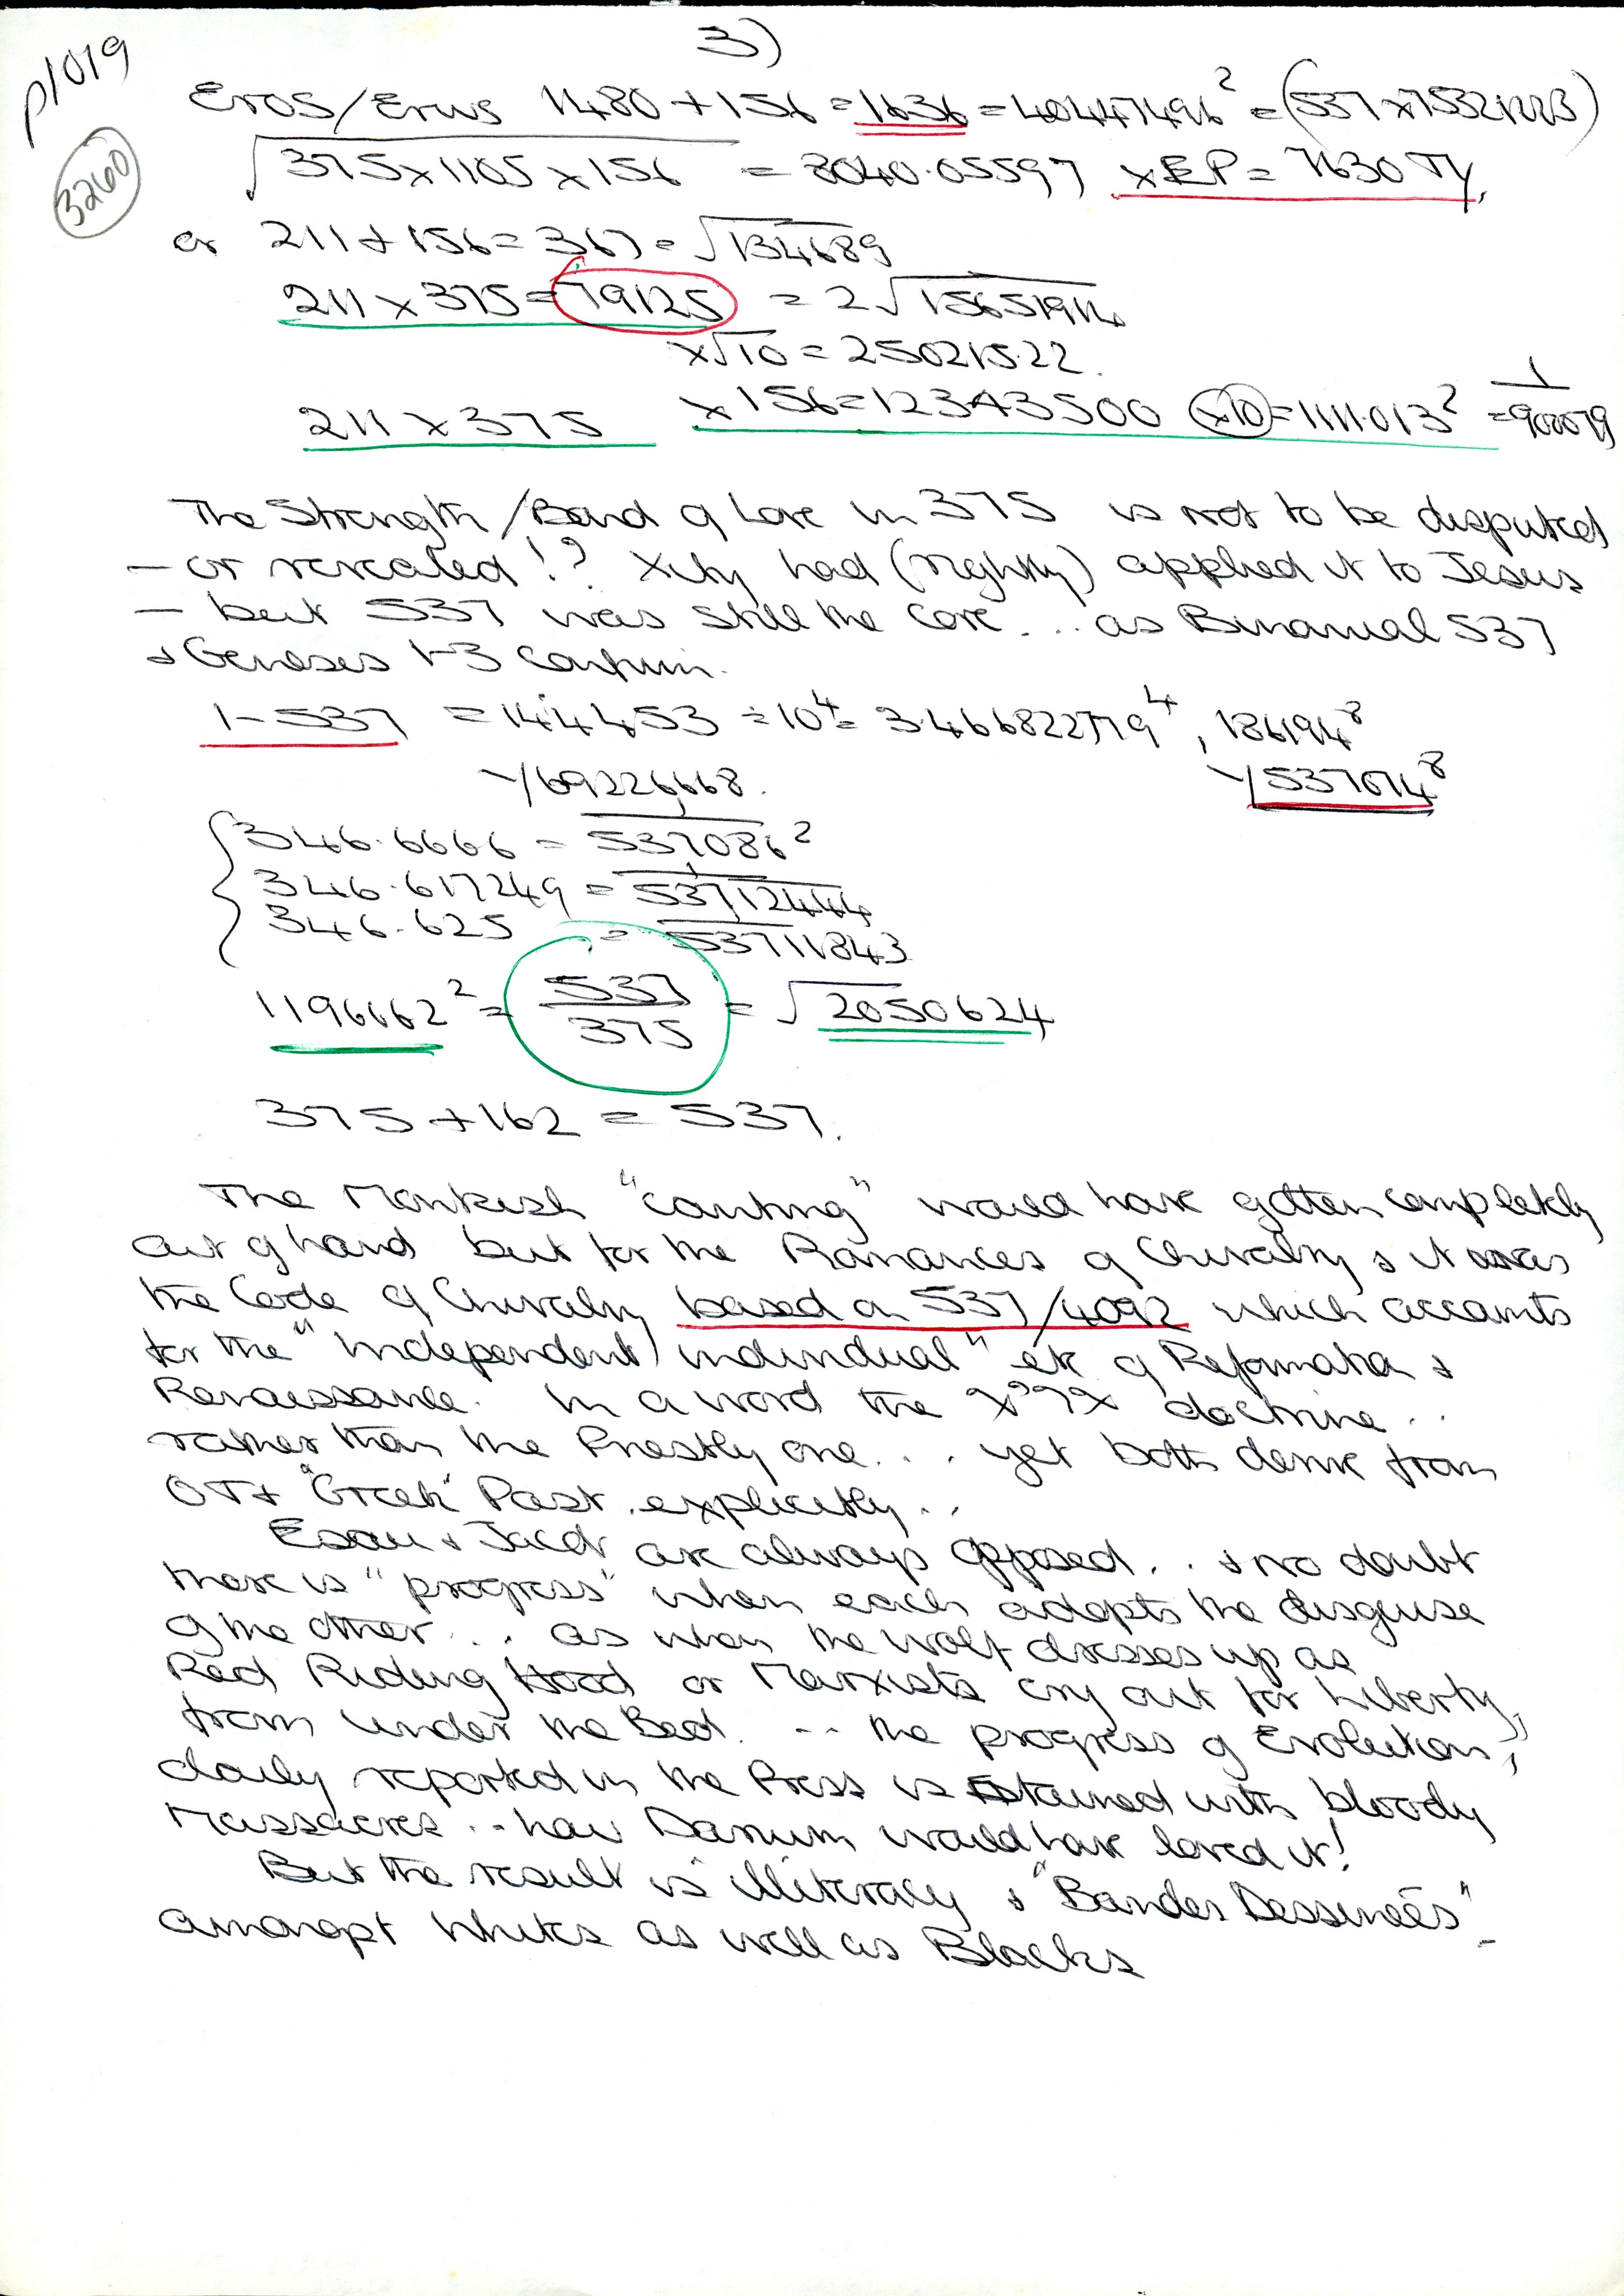 3)
p1079
3260
Eros/Erus 1480 + 156 = 1636 = 40447496² = (537 x 7532
√375 x 1105 x 156 = 8040.05597 x EP = 7630 TY.
or 211 + 156 = 367 = √134689
211 x 375 = 79125 = 2√1565
x √10 = 250215.22
211 x 375 x 156 = 12343500 x10 = 1111.013² = 1/900079
The Strength/Bond of Love in 375 is not to be disputed
— or revealed!? Xity had (rightly) applied it to Jesus
— but 537 was still the core... as Binomial 537
& Geneses 1-3 confirm.
1-537 = 144453 ÷ 10⁴ = 3466822779⁴, 186194⁸
-/69226668. -/537074⁸
346.6666 = 537086²
346.617249 = 53712444
346.625 = 53711843
1196662² = 537/375 = √2050624
375 + 162 = 537.
The Monkish "counting" would have gotten completely
out of hand but for the Romances of Chivalry & it was
the Code of Chivalry based on 537/4092 which accounts
for the "Independent individual" etc of Reformation &
Renaissance. In a word the doctrine..
rather than the Priestly one... yet both derive from
OT + "Greek" Past. explicitly..
Esau & Jacob are always opposed.. & no doubt
there is "progress" when each adopts the disguise
of the other... as when the wolf dresses up as
Red Riding Hood or Marxists cry out for Liberty,
from under the Bed. -- the progress of Evolution,
daily reported in the Press is stained with bloody
Massacres.. how Darwin would have loved it!
But the result is illiteracy & "Bandes Dessinées"-
amongst Whites as well as Blacks